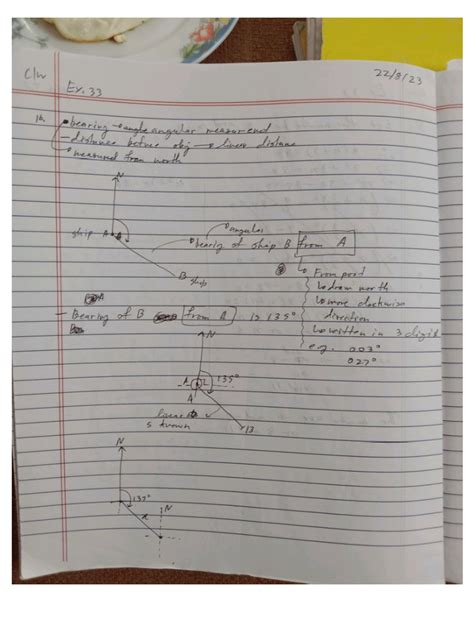 C/w
22/8/23
Ex. 33
bearing → angle angular measurement
distance before obj → linear distance
measured from north
N
ship A
angular
bearing of ship B from A
B ship
From point
draw north
move clockwise
direction
written in 3 digit
e.g. 003°
027°
Bearing of B from A is 135°
N
A
135°
A
linear
B
N
135°
N
x